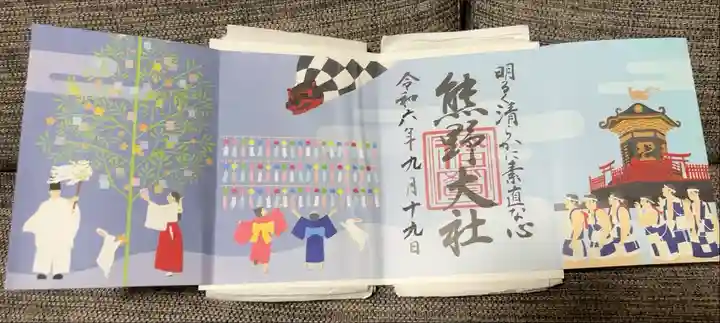 明るく清らか素直な心
熊野大社
令和六年九月十九日